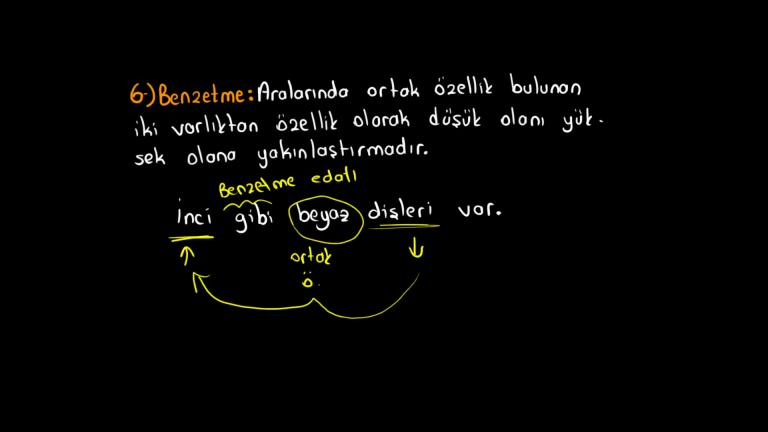 6-) Benzetme: Aralarında ortak özellik bulunan
iki varlıktan özellik olarak düşük olanı yük-
sek olana yakınlaştırmadır.
Benzetme edatı
İnci gibi beyaz dişleri var.
ortak
ö.